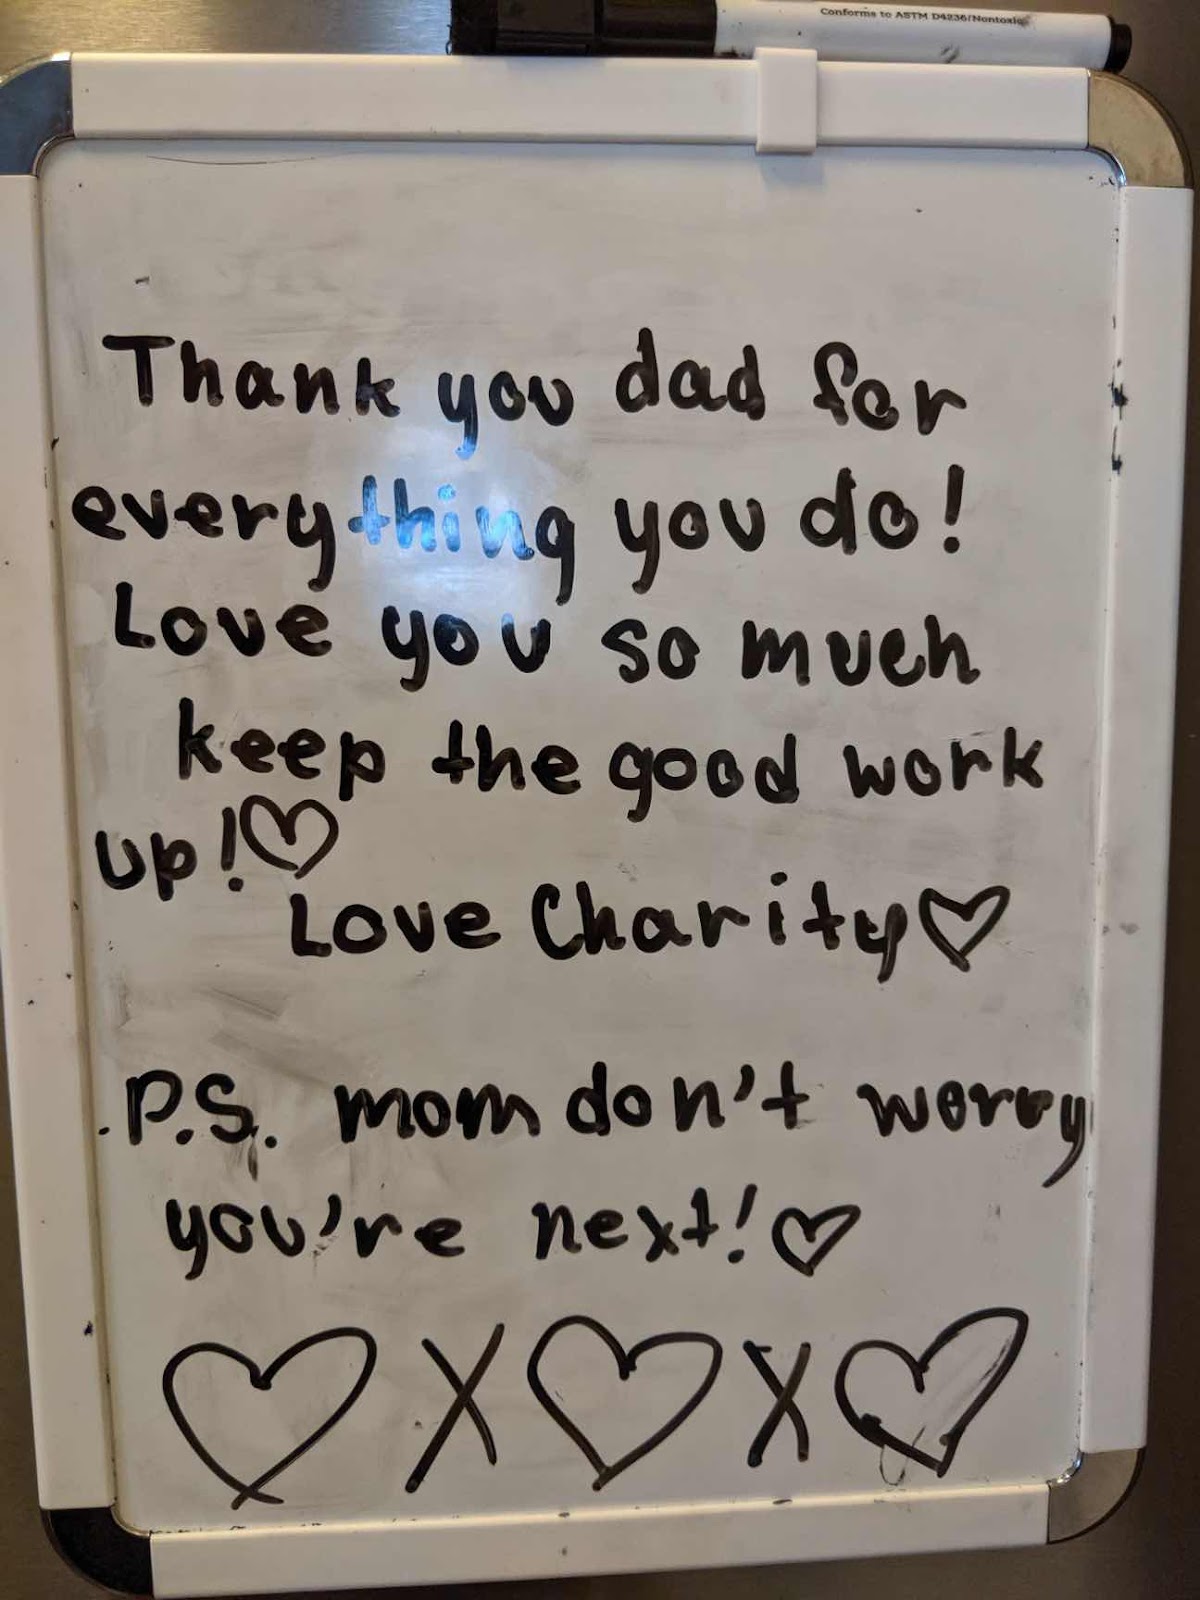 Conforms to ASTM D4236/Nontoxic
Thank you dad for
everything you do!
Love you so much
keep the good work
up!♡
Love Charity♡
P.S. mom don't worry
you're next!♡
♡ X ♡ X ♡